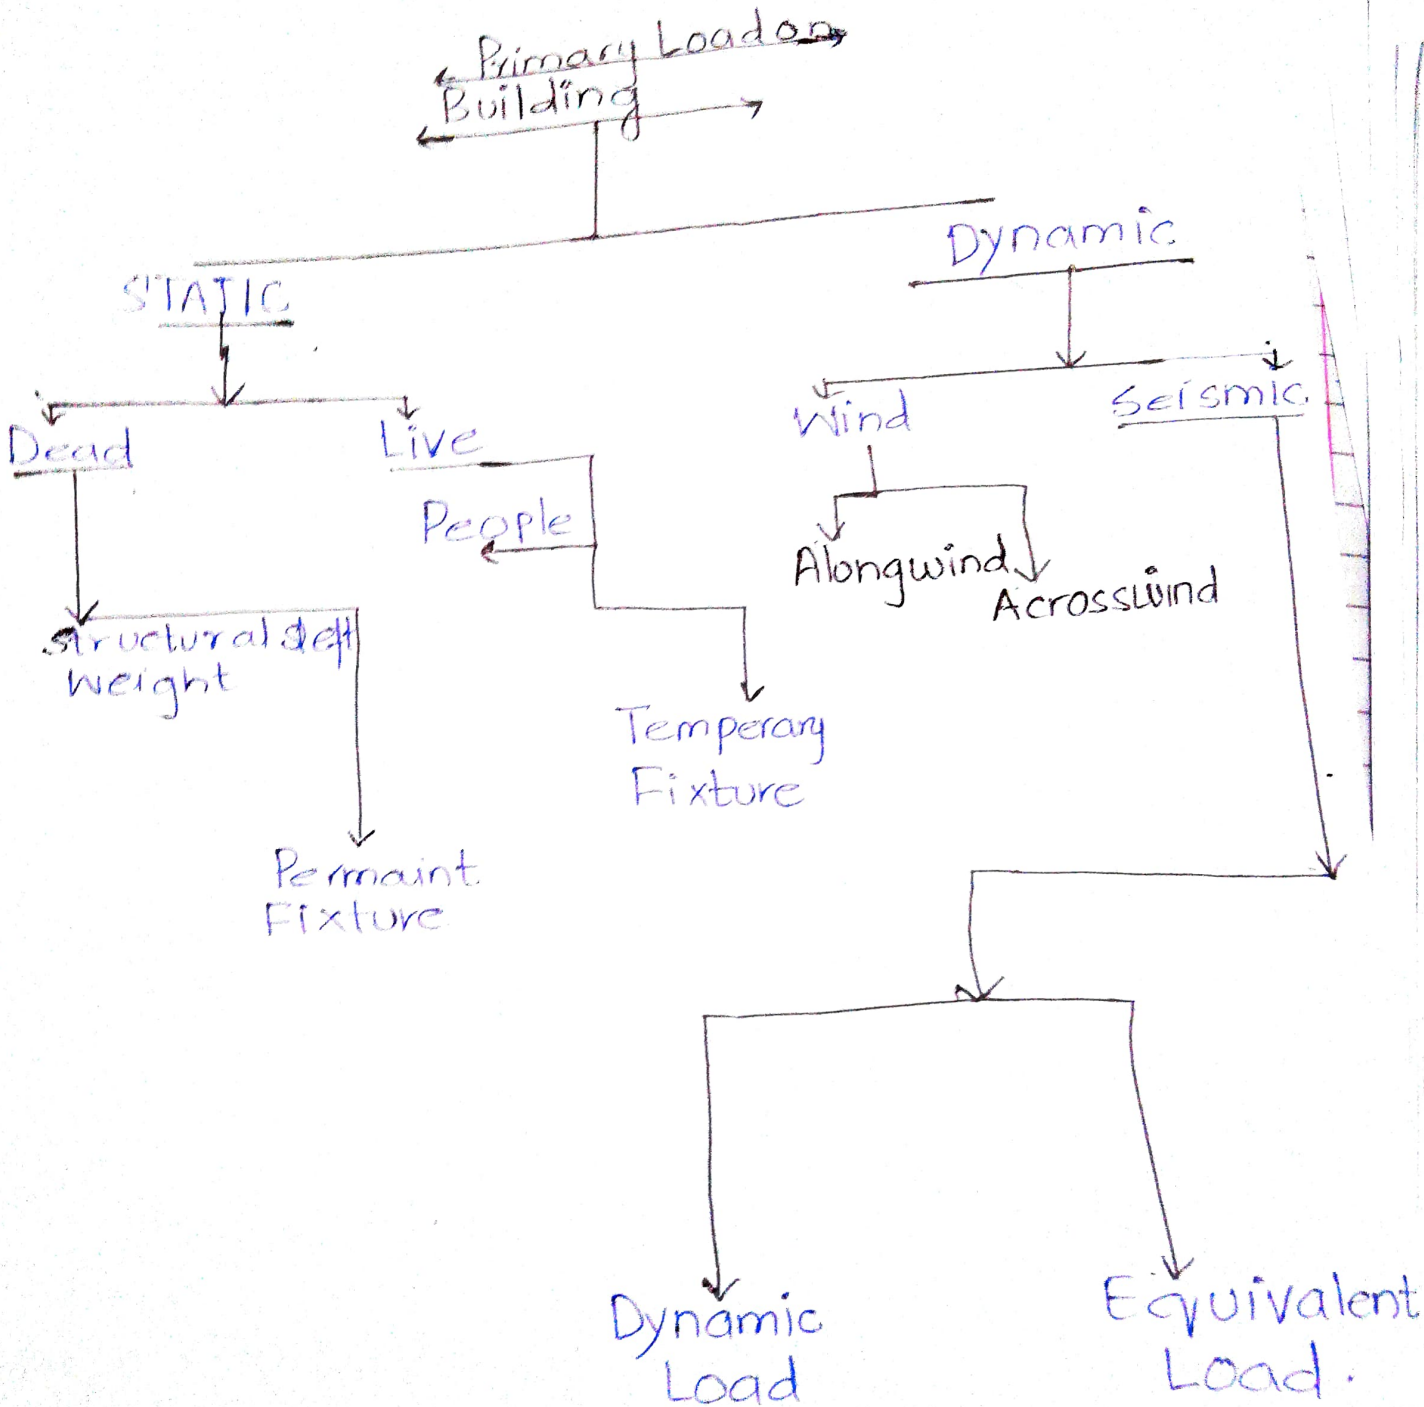 Primary Load on
Building
Dynamic
STATIC
Wind
Seismic
Dead
Live
People
Alongwind
Acrosswind
Structural self
Weight
Temperary
Fixture
Permaint
Fixture
Dynamic
Load
Equivalent
Load.